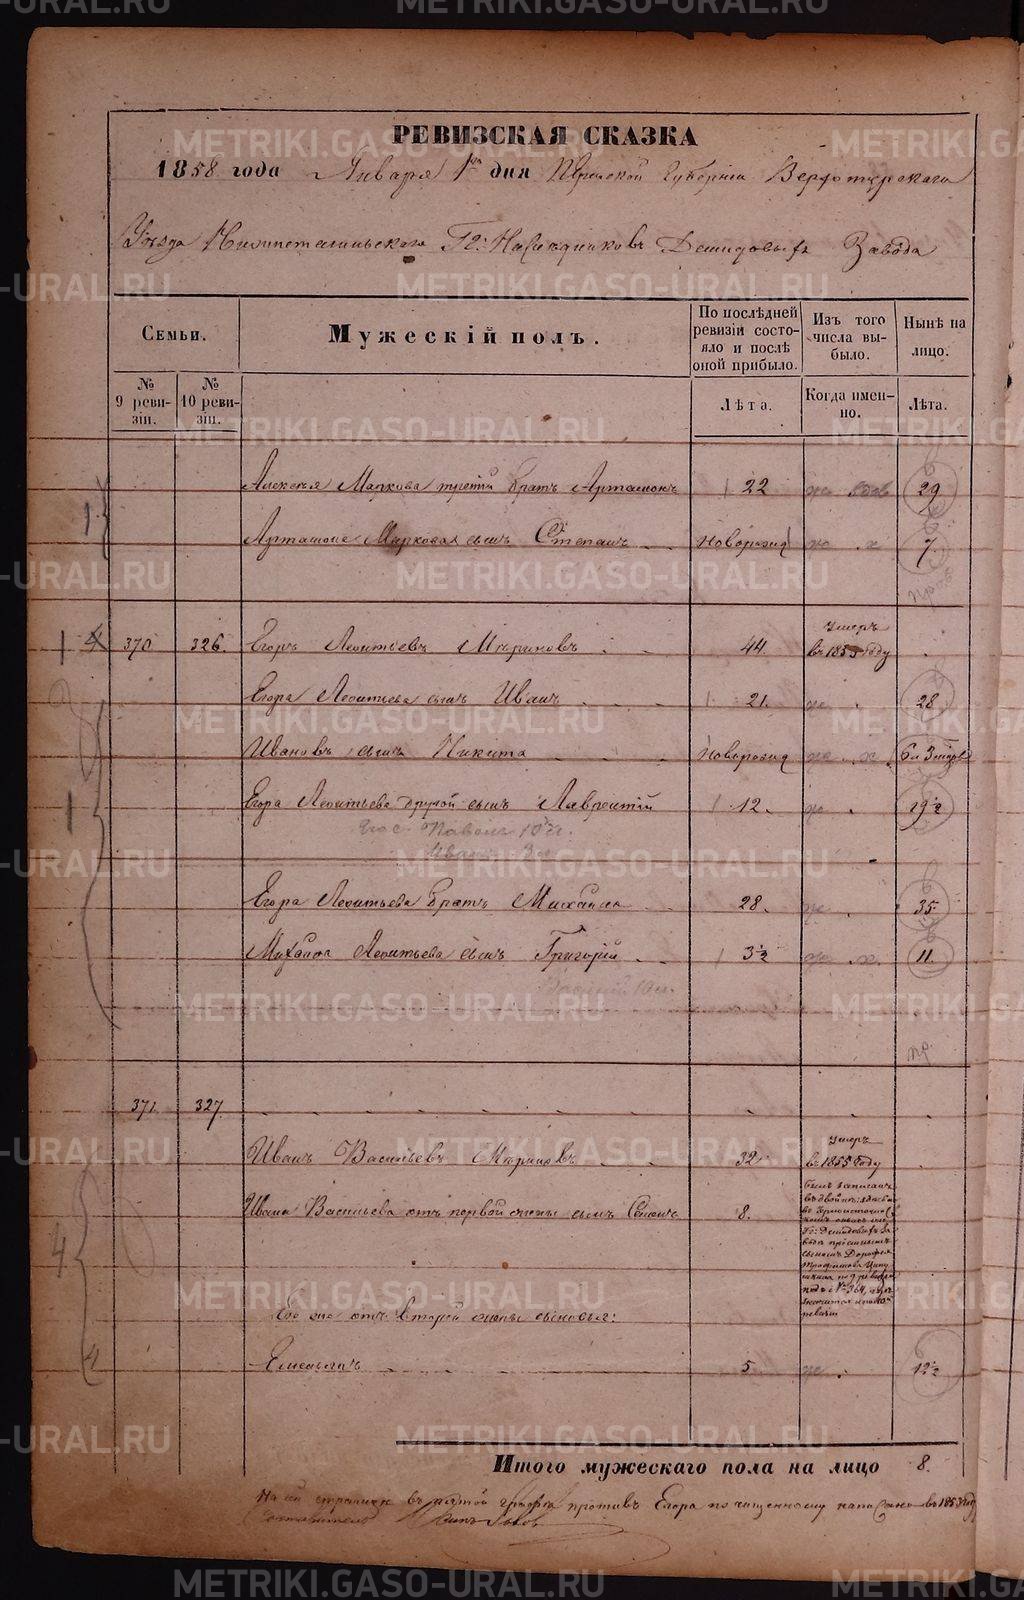 РЕВИЗСКАЯ СКАЗКА
1858 года Января 1го дня Пермской Губерніи Верхотурскаго
Уѣзда Нижнетагильскаго Гг: Наслѣдниковъ Демидовыхъ Завода
Семьи.
Мужескій полъ.
По послѣдней ревизіи состояло и послѣ оной прибыло.
Изъ того числа выбыло.
Нынѣ на лицо.
№ 9 ревизіи.
№ 10 ревизіи.
Лѣта.
Когда именно.
Лѣта.
Алексѣя Маркова третій братъ Артамонъ 22 29
Артамона Маркова сынъ Степанъ Новорожд 7
370 326. Егоръ Леонтьевъ Мѣриновъ 44 умеръ въ 1853 году
Егора Леонтьева сынъ Иванъ 21. 28
Ивановъ сынъ Никита Новорожд
Егора Леонтьева другой сынъ Лаврентій 12. 19½
Его с. Павелъ 10 л.
Иванъ
Егора Леонтьева братъ Михайла 28. 35
Михайла Леонтьева сынъ Григорій 3½ 11
пр.
371 327
Иванъ Васильевъ Мѣриновъ 32 умеръ въ 1855 году
Ивана Васильева отъ первой жены сынъ Семенъ 8.
былъ записанъ
въ двойнѣ
Его же отъ второй жены сыновья:
Емельянъ 5 12½
Итого мужескаго пола на лицо 8.
На сей страницѣ въ пятой графѣ противъ Егора по чищенному написано въ 1853 году
METRIKI.GASO-URAL.RU